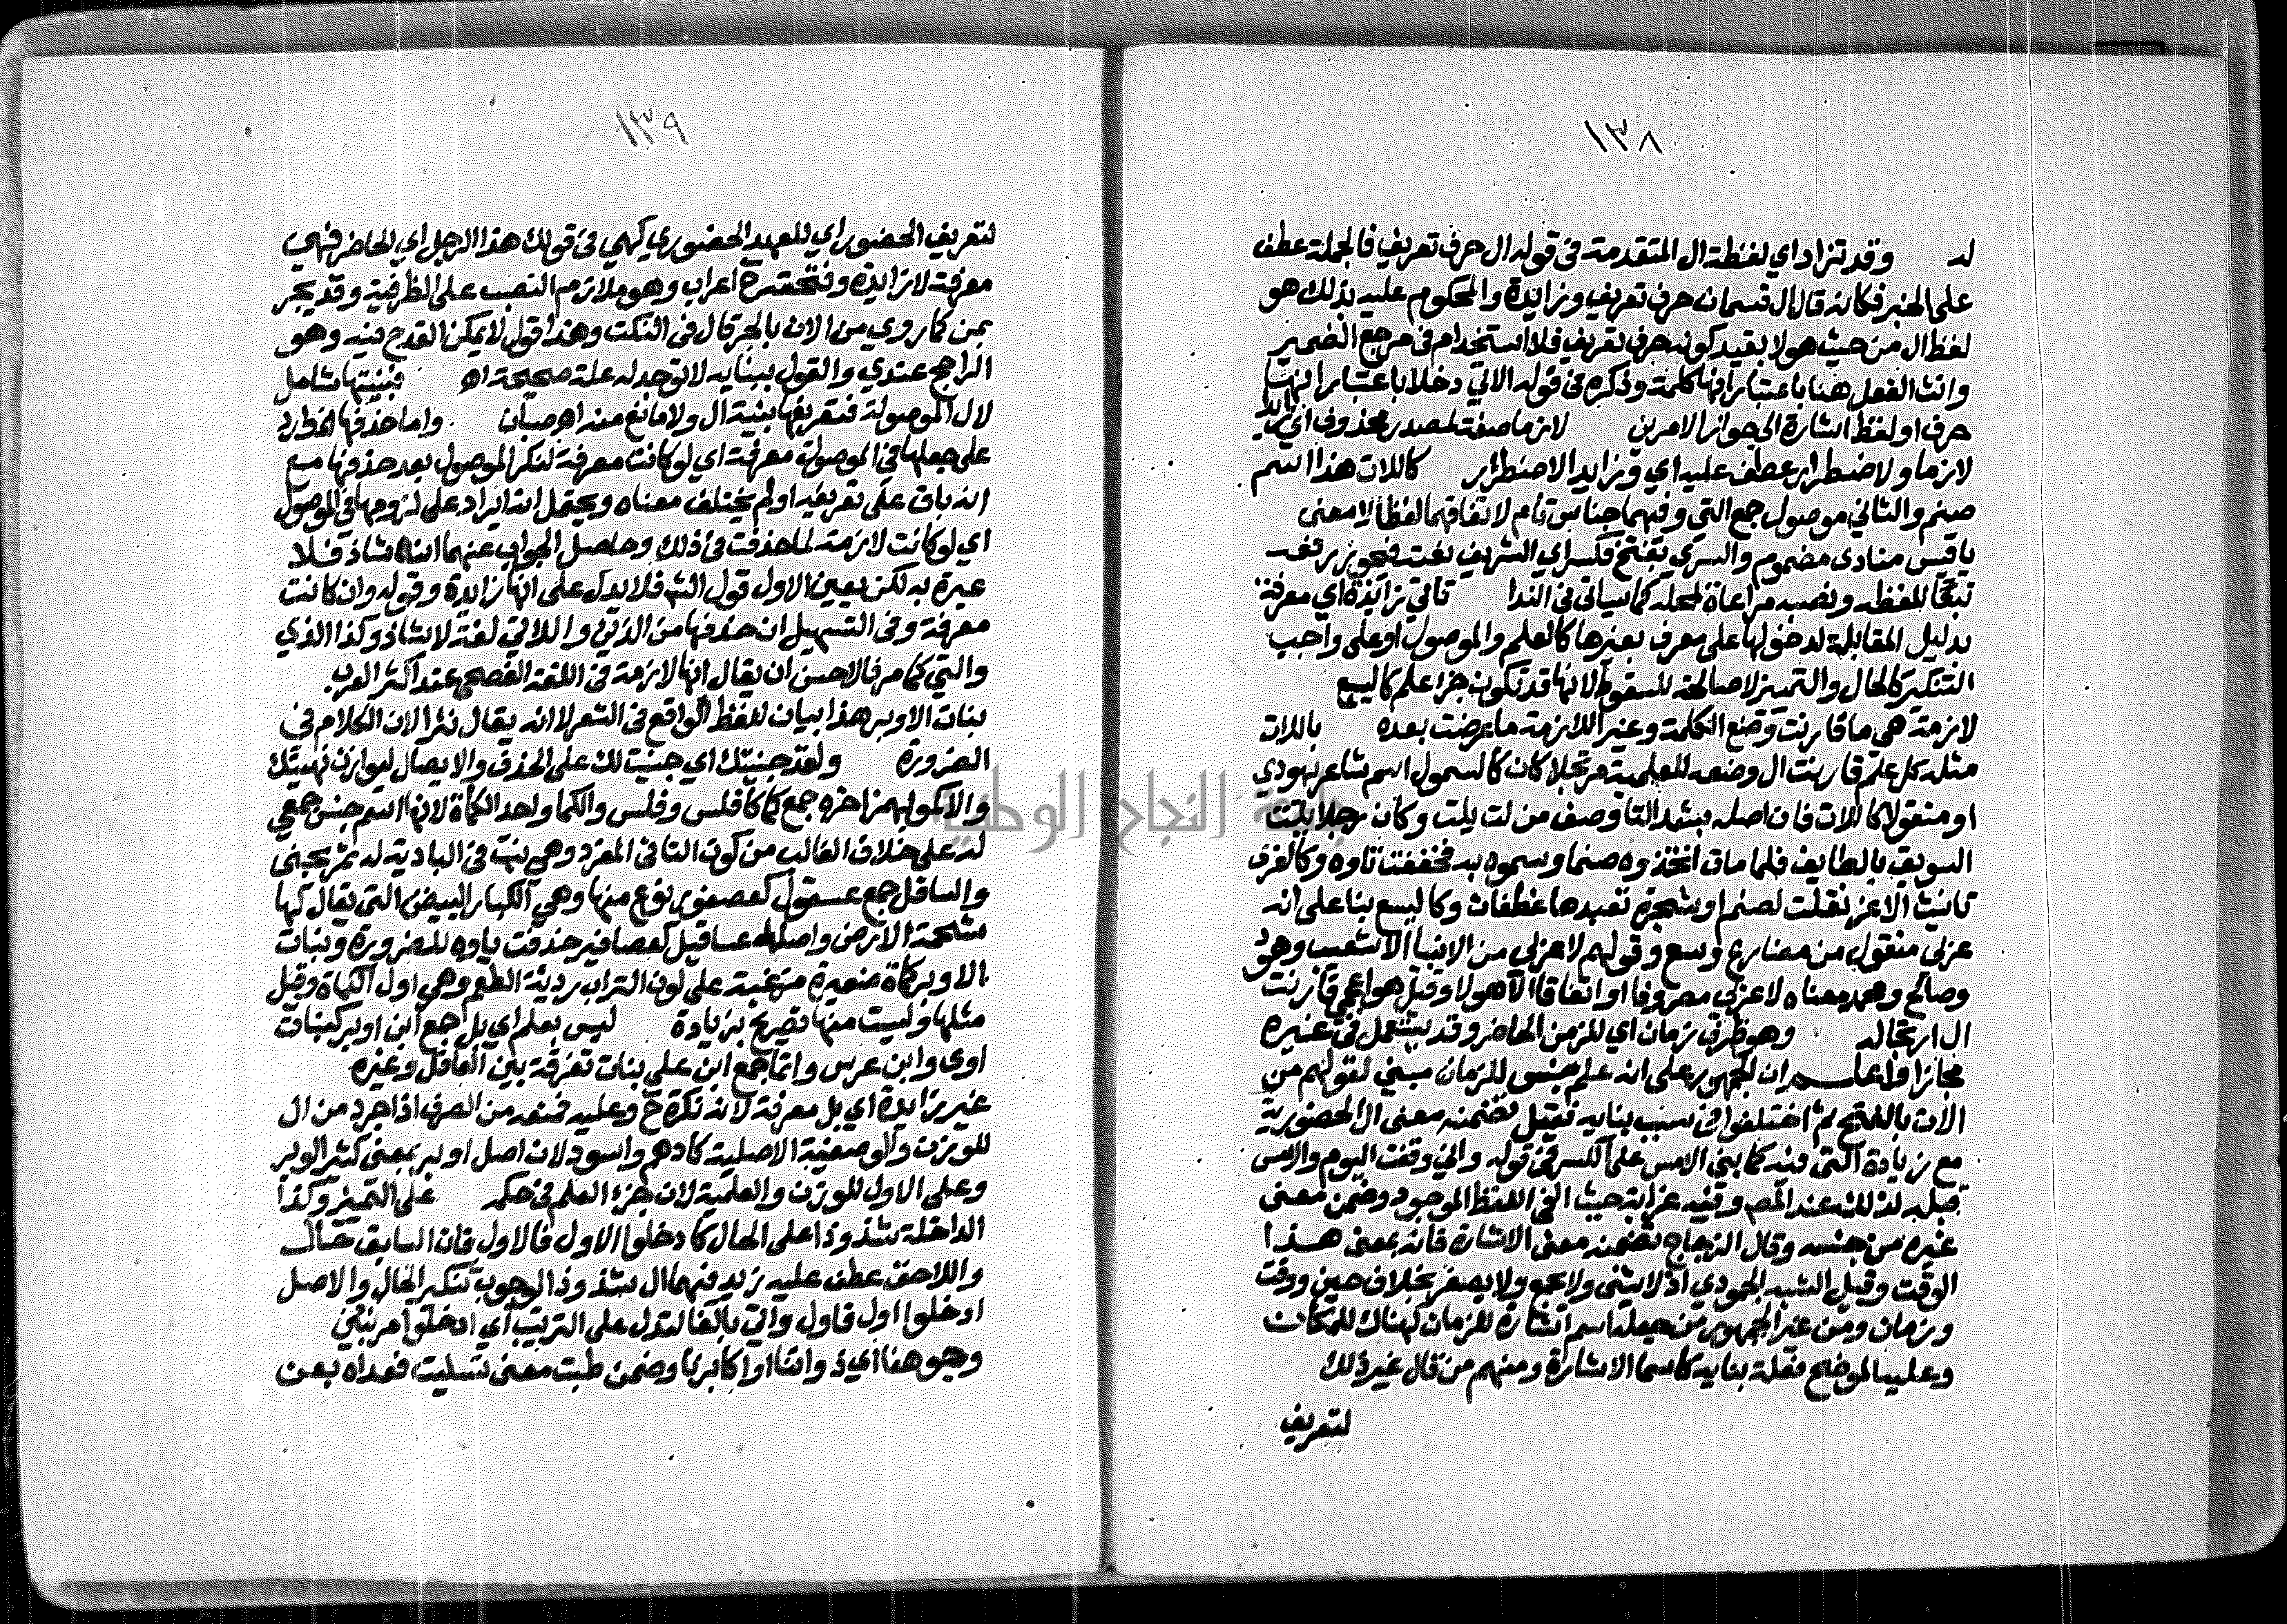 ١٣٨
له وقد تزاد اي لفظة ال المتقدمة في قوله ال حرف تعريف فالجملة عطف
على الخبر فكانه قال ال قسمان حرف تعريف وزايدة والمحكوم عليه بذلك هو
لفظ ال من حيث هو لا بقيد كونه حرف تعريف فلا استخدام في مرجع الضمير
وانث الفعل هنا باعتبار انها كلمة وذكره في قوله الاتي دخلا باعتبار انها
حرف او لفظ اشارة الى جواز الامرين لازما صفة لمصدر محذوف اي زيد
لازما ولاضطرار عطف عليه اي وزايد الاضطرار كاللات هذا اسم
صنم والثاني موصول جمع التي وفيهما جناس تام لاتفاقهما لفظا لا معنى
ياقيس منادى مضموم والسري بفتح فكسر اي الشريف نعت فيجوز رفعه
تبعا للفظه ونصبه مراعاة لمحله كما سياتي في الندا تاتي زايدة اي معرفة
بدليل المقابلة لدخولها على معرف بغيرها كالعلم والموصول او على واجب
التنكير كالحال والتمييز لا صالحة للسقوط لانها قد تكون جزا علم كاليسع
لازمة هي ما قارنت وضع الكلمة وغير اللازمة ما عرضت بعده باللات
مثله كل علم قارنت ال وضعه للعلمية مرتجلا كان كالسمول اسم شاعر يهودي
او منقولا كاللات فان اصله بشد التا وصف من لت يلت وكان رجلا يلت
السويق بالطايف فلما مات اتخذوه صنما وسموه به فخففت تاوه وكالعزى
تانيث الاعز نقلت لصنم او شجرة تعبدها غطفان وكاليسع بنا على انه
عربي منقول من مضارع وسع وقولهم لا عربي من الانبيا الا شعيب وهود
وصالح ومحمد معناه لا عربي مصروفا او اتفاقا الا هولا وقيل هو اعجمي قارنت
ال ارتجاله وهو ظرف زمان اي للزمن الحاضر وقد يستعمل في غيره
مجازا واعلم ان الجمهور على انه علم جنس للزمان مبني لقولهم من
الان بالفتح ثم اختلفوا في سبب بنايه فقيل لتضمنه معنى ال الحضورية
مع زيادة التي فيه كما بني الامس على الكسر في قوله واني وقفت اليوم والامس
قبله لذلك عند المص وفيه غرابة حيث الغي اللفظ الموجود وضمن معنى
غيره من جنسه وقال الزجاج لتضمنه معنى الاشارة فانه بمعنى هذا
الوقت وقيل الشبه الجمودي اذ لا يثنى ولا يجمع ولا يصغر بخلاف حين ووقت
وزمان ومن غير الجمهور من جعله اسم اشارة للزمان كهناك للمكان
وعليه الموضح فعلة بنايه كاسما الاشارة ومنهم من قال غير ذلك
لتعريف
١٣٩
لتعريف الحضور اي للعهد الحضوري كهي في قولك هذا الرجل اي الحاضر فهي
معرفة لا زايدة وفتحته اعراب وهو ملازم النصب على الظرفية وقد يجر
بمن كما روي من الان بالجر قال في النكت وهذا قول لا يمكن القدح فيه وهو
الراجح عندي والقول ببنايه لا توجد له علة صحيحة اه فبنيتها شامل
لال الموصولة فتعريفها بنية ال ولا مانع منه اه صبان واما حذفها
على جعلها في الموصول معرفة اي لو كانت معرفة لنكر الموصول بعد حذفها مع
انه باق على تعريفه اولم يختلف معناه ويحتمل انه ايراد على لزومها في الموصول
اي لو كانت لازمة لما حذفت في ذلك وحاصل الجواب عنهما انه شاذ فلا
عبرة به لكن يعين الاول قول الش فلا يدل على انها زايدة وقوله وان كانت
معرفة وفي التسهيل ان حذفها من الذين واللاتي لغة لا شاذ وكذا الذي
والتي كما مر فالاحسن ان يقال انها لازمة في اللغة الفصحى عند اكثر العرب.
بنات الاوبر هذا بيان للفظ الواقع في الشعر لا انه يقال نثرا لان الكلام في
الضرورة ولقد جنيتك اي جنيت لك على الحذف والايصال ليوازن نهيتك
والاكمو بهمز اخره جمع كما كافلس وفلس والكما واحد الكماة لانها اسم جنس جمعي
له على خلاف الغالب من كون التا في المفرد وهي نبت في البادية له ثمر يجنى
والساقل جمع عسقول كعصفور نوع منها وهي الكبار البيض التي يقال لها
شحمة الارض واصله عساقيل كعصافير حذفت ياوه للضرورة وبنات
الاوبر كماة صغيرة مزغبة على لون التراب ردية الطعم وهي اول الكماة وقيل
مثلها وليست منها تصريح بزيادة ليس بعلم اي بل جمع ابن اوبر كبنات
اوى وابن عرس وانما جمع ابن على بنات تفرقة بين العاقل وغيره
غير زايدة اي بل معرفة لانه نكرة ح وعليه فمنعه من الصرف اذا جرد من ال
للوزن والوصفية الاصلية كادهم واسود لان اصل اوبر بمعنى كثير الوبر
وعلى الاول للوزن والعلمية لان جزء العلم في حكمه على التمييز وكذا
الداخلة شذوذا على الحال كادخلوا الاول فالاول فان السابق حال
واللاحق عطف عليه زيد فيهما ال شذوذا لوجوب تنكير الحال والاصل
ادخلوا اول فاول واتي بالفا لتدل على الترتيب اي ادخلوا مرتبين
وجوهنا اي ذواتنا او اكابرنا وضمن طبت معنى تسليت فعداه بعن